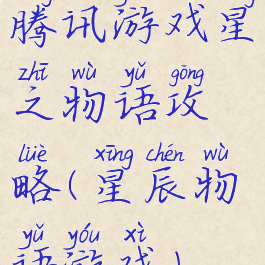 腾讯游戏星
zhī wù yǔ gōng
之物语攻
lüè xīng chén wù
略(星辰物
yǔ yóu xì
语游戏)